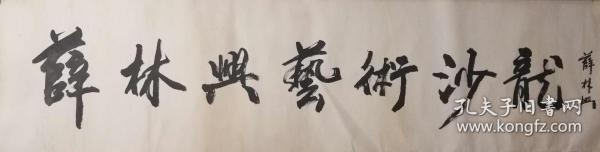 薛林興藝術沙龍
薛林興
孔夫子旧書网
www.kongfz.com